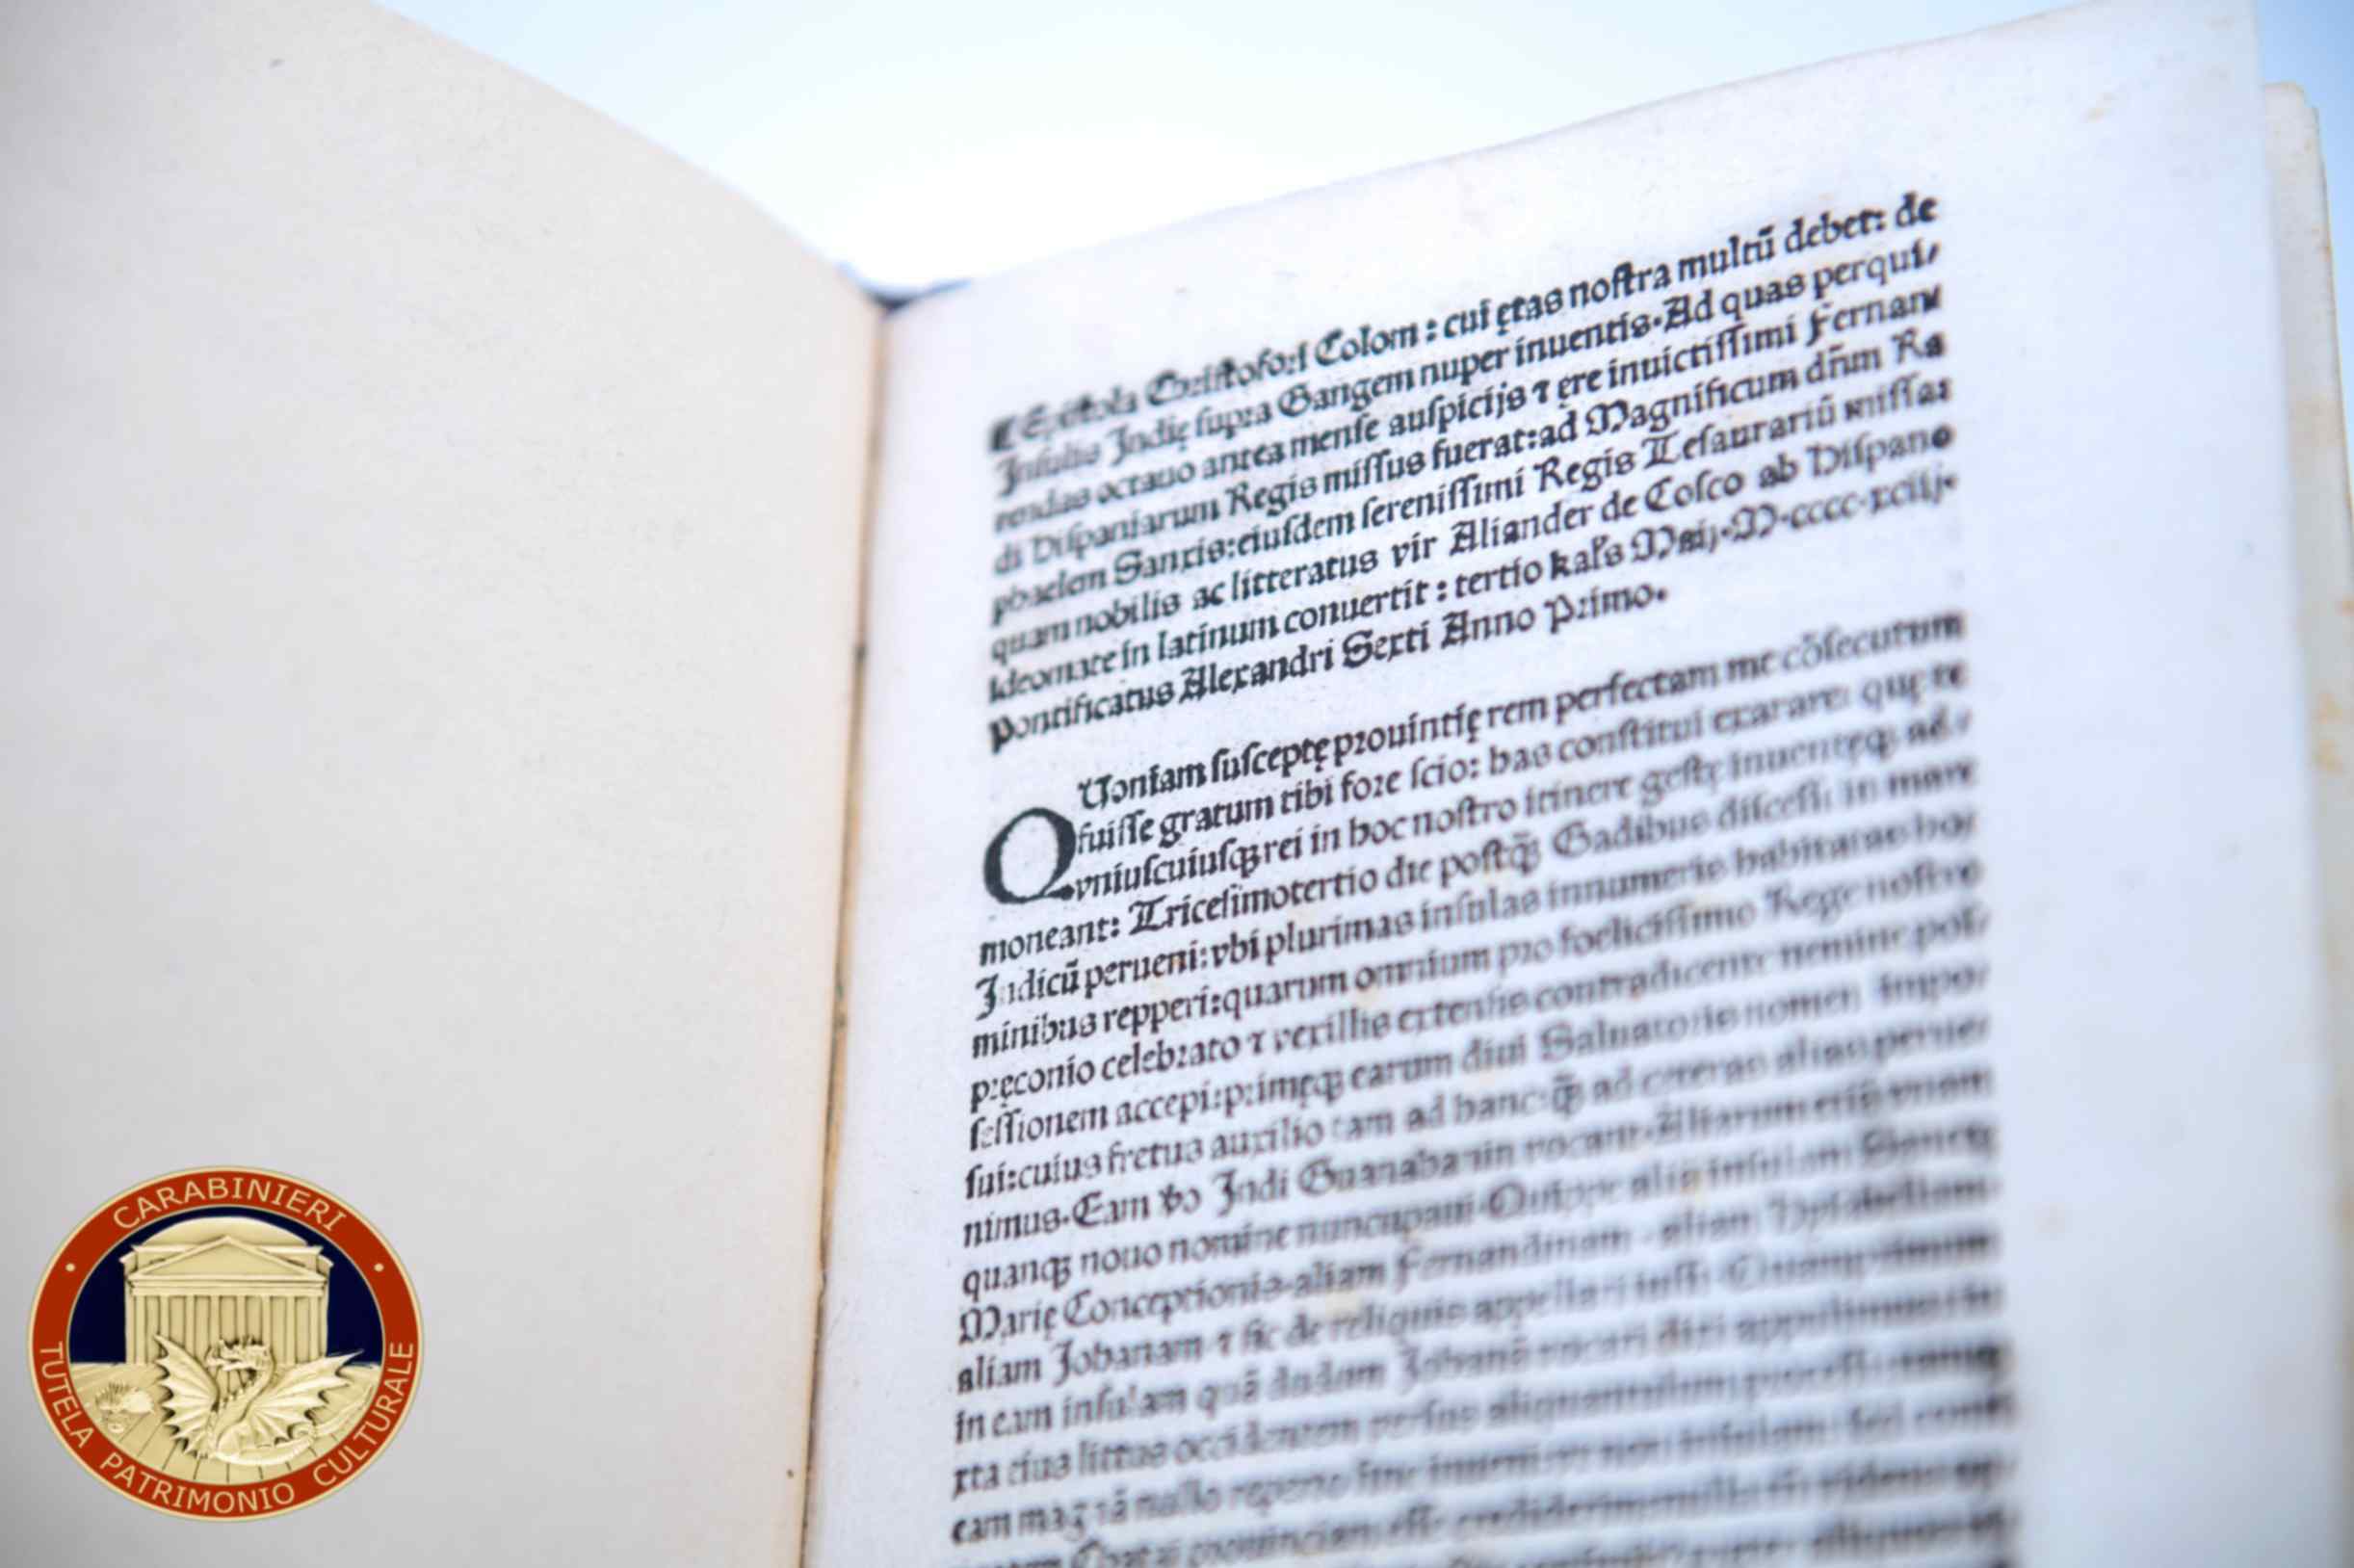 ¶ Epistola Cristofori Colom : cui ętas nostra multũ debet: de
Insulis Indię supra Gangem nuper inuentis. Ad quas perqui/
rendas octauo antea mense auspicijs ⁊ ęre inuictissimi Fernan/
di Hispaniarum Regis missus fuerat: ad Magnificum dñm Ra
phaelem Sanxis: eiusdem serenissimi Regis Tesaurariũ missa:
quam nobilis ac litteratus vir Aliander de Cosco ab Hispano
ideomate in latinum conuertit : tertio kal's Maij. M.cccc.xciij.
Pontificatus Alexandri Sexti Anno Primo.
QUoniam susceptę prouintię rem perfectam me cõsecutum
fuisse gratum tibi fore scio: has constitui exarare: quę te
vniuscuiusqꝫ rei in hoc nostro itinere gestę inuentęqꝫ ad/
moneant: Tricesimotertio die postq̃ꝫ Gadibus discessi: in mare
Indicũ perueni: vbi plurimas insulas innumeris habitatas ho/
minibus repperi: quarum omnium pro foelicissimo Rege nostro
pręconio celebrato ⁊ vexillis extensis contradicente nemine pos/
sessionem accepi: primęqꝫ earum diui Saluatoris nomen impo/
sui: cuius fretus auxilio tam ad hanc: q̃ꝫ ad ceteras alias perue/
nimus. Eam ꝟo Indi Guanahanin vocant. Aliarum etiã vnam
quanqꝫ nouo nomine nuncupaui. Quippe aliã insulam Sanctę
Marię Conceptionis. aliam Fernandinam. aliam Hysabellam.
aliam Johanam. ⁊ sic de reliquis appellari iussi. Quamprimum
in eam insulam quã dudum Johanã vocari dixi appulimus: iu
xta eius littus occidentem versus aliquantulum processi: tamqꝫ
eam magnã nullo reperto fine inueni: vt non insulam: sed conti
CARABINIERI
TUTELA PATRIMONIO CULTURALE